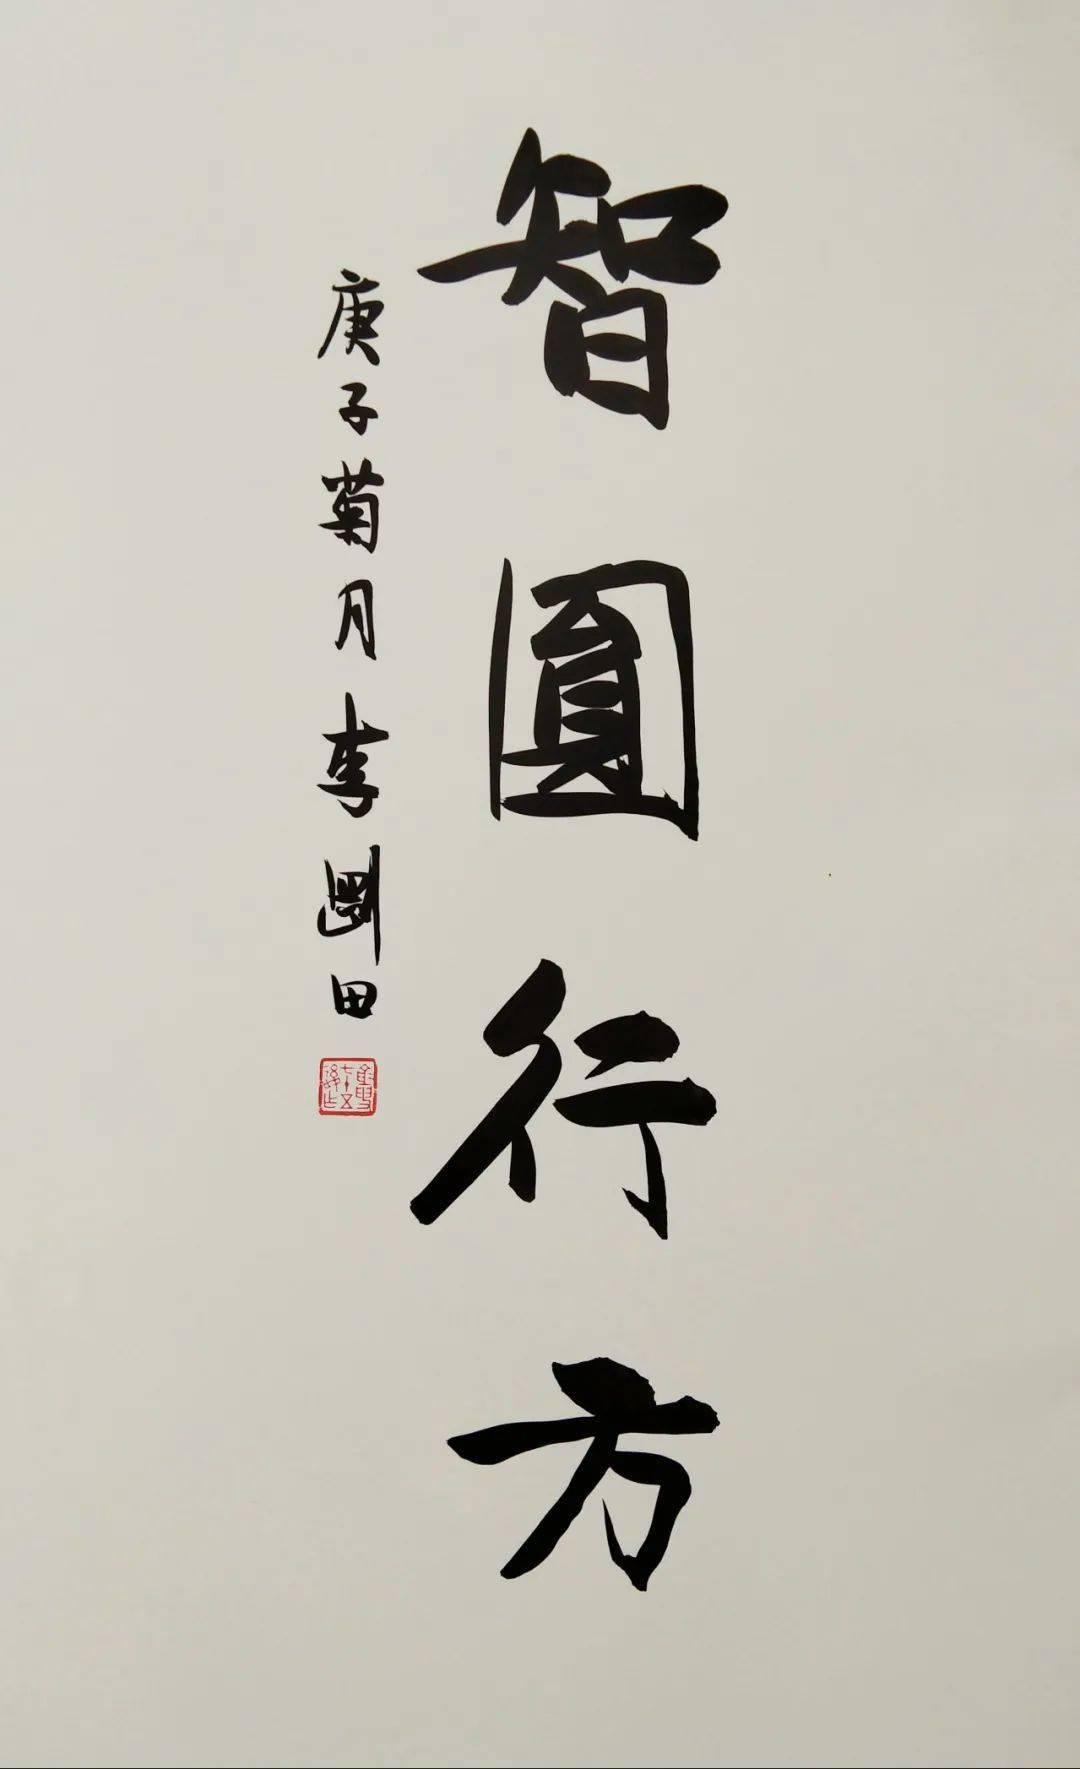 智圓行方
庚子菊月李剛田